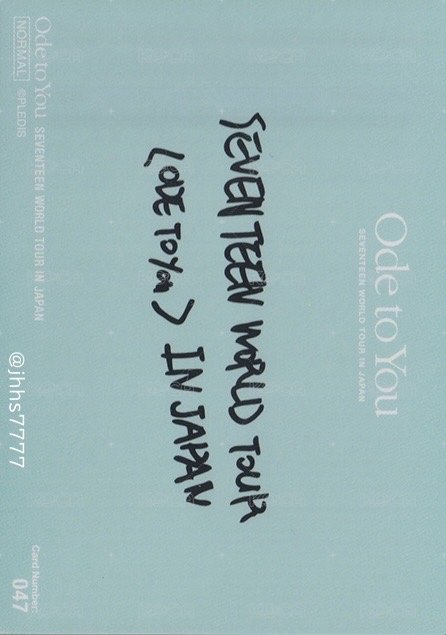 Ode to You
SEVENTEEN WORLD TOUR IN JAPAN
SEVENTEEN WORLD TOUR
<ODE TO YOU> IN JAPAN
Ode to You SEVENTEEN WORLD TOUR IN JAPAN
NORMAL ©PLEDIS
@jhhs7777
Card Number:
047